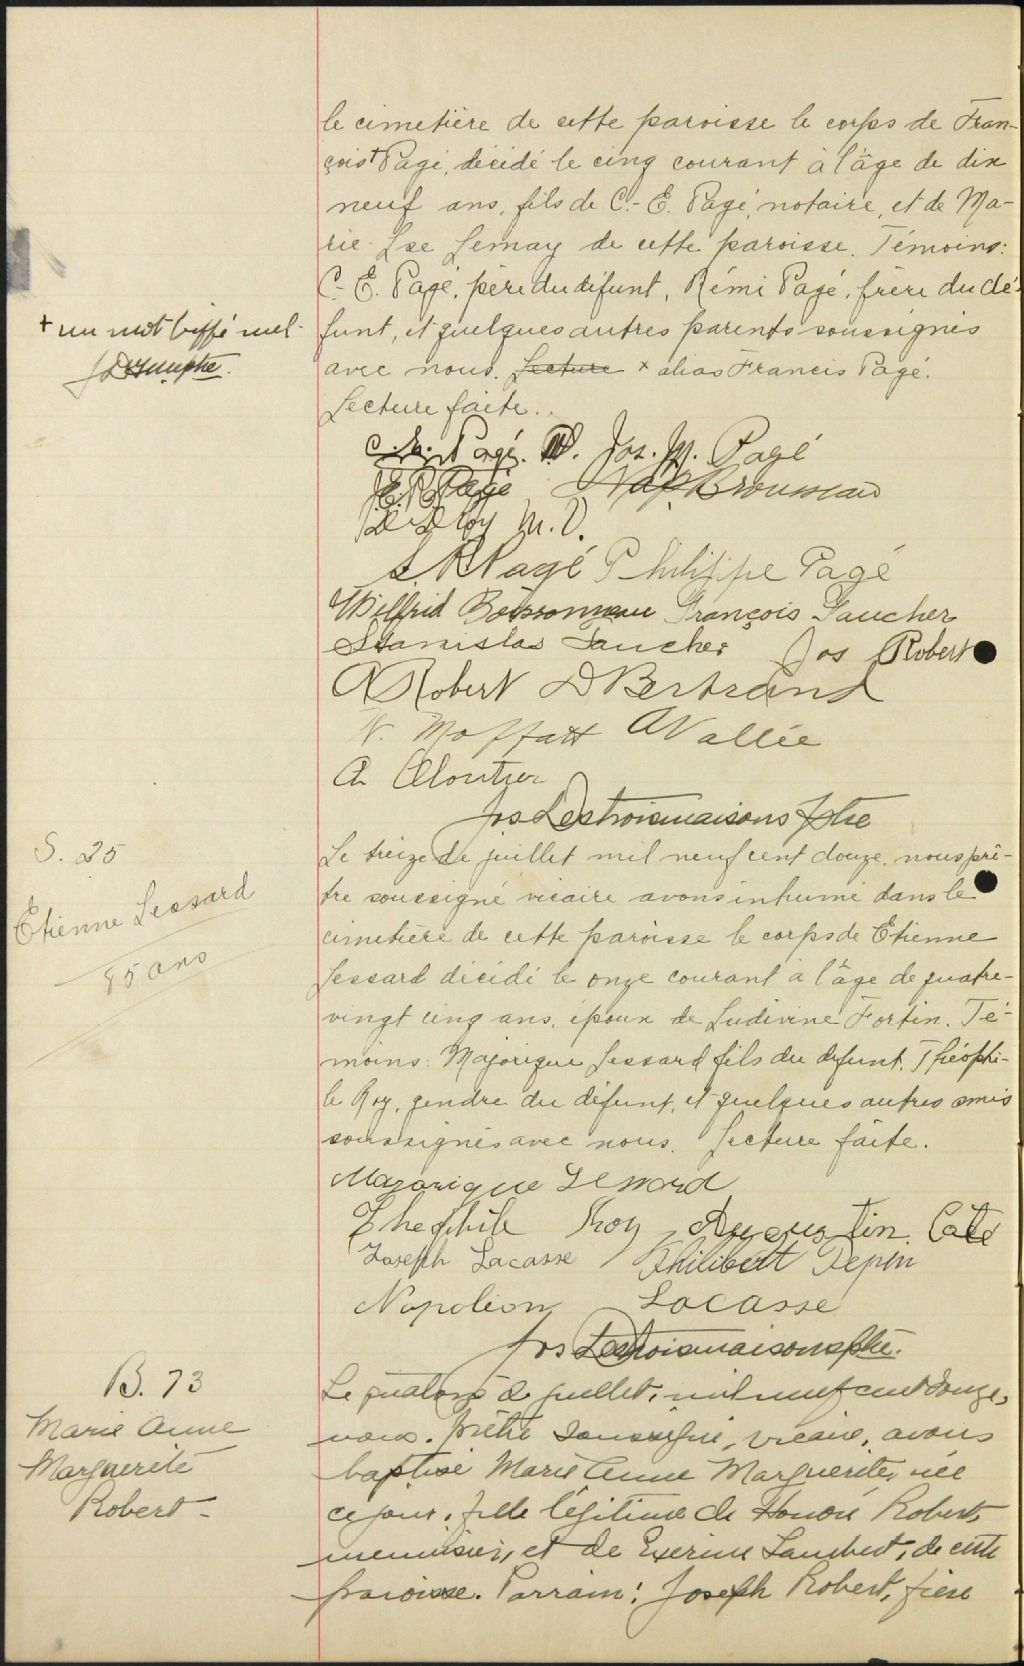 le cimetière de cette paroisse le corps de Fran-
çois + Pagé, décédé le cinq courant à l'âge de dix
neuf ans, fils de C.-E. Pagé, notaire, et de Ma-
rie-Lse Lemay de cette paroisse. Témoins:
C.-E. Pagé, père du défunt, Rémi Pagé, frère du dé-
+ un mot biffé nul
funt, et quelques autres parents soussignés
avec nous. Lecture x alias Francis Pagé.
Lecture faite.
C. E. Pagé. N.P. Jos. M. Pagé
J.E.R. Pagé Nap Brousseau
Roy M.D.
L R Pagé Philippe Pagé
Wilfrid Boissonneau François Gaucher
Stanislas Faucher Jos Robert
A Robert D Bertrand
W. Moffatt A Vallée
A Cloutier
Jos Destroismaisons Ptre
S. 25
Etienne Lessard
85 ans
Le treize de juillet mil neuf cent douze, nous prê-
tre soussigné vicaire avons inhumé dans le
cimetière de cette paroisse le corps de Etienne
Lessard décédé le onze courant à l'âge de quatre-
vingt cinq ans, époux de Ludivine Fortin. Té-
moins: Majorique Lessard fils du défunt, Théophi-
le Roy, gendre du défunt, et quelques autres amis
soussignés avec nous. Lecture faite.
Majorique Lessard
Theophile Roy Augustin Coté
Joseph Lacasse Philibert Pepin
Napoleon Lacasse
Jos Destroismaisons ptre.
B. 73
Marie Anne
Marguerite
Robert -
Le quatorze de juillet, mil neuf cent douze,
nous, prêtre soussigné, vicaire, avons
baptisé Marie Anne Marguerite, née
ce jour, fille légitime de Honoré Robert,
menuisier, et de Exerine Lambert, de cette
paroisse. Parrain: Joseph Robert, frère